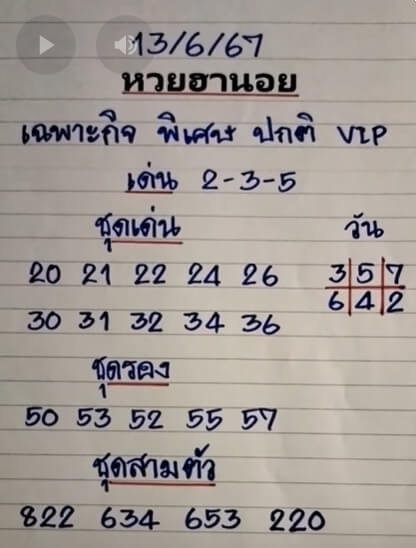 13/6/67
หวยฮานอย
เฉพาะกิจ พิเศษ ปกติ VIP
เด่น 2-3-5
ชุดเด่น วัน
20 21 22 24 26 3 5 7
30 31 32 34 36 6 4 2
ชุดรอง
50 53 52 55 57
ชุดสามตัว
822 634 653 220